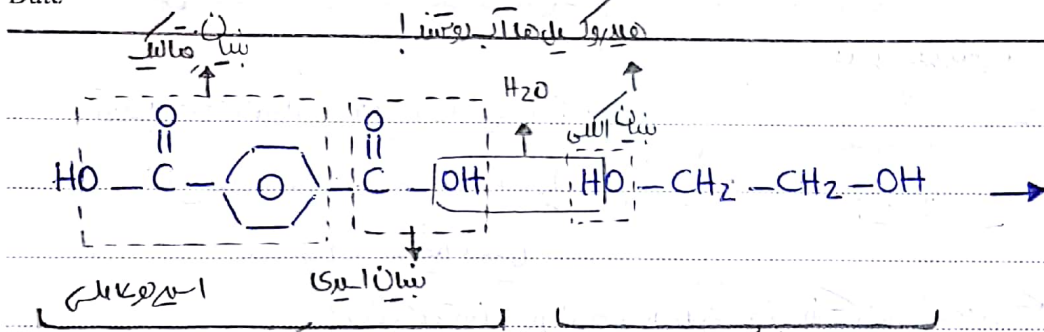 Date
هیدروکسیل ها آب دوستند!
بنیان
H2O
بنیان الکلی
O O
|| ||
HO – C – O – C – OH HO – CH2 – CH2 – OH →
بنیان اسیدی
اسید دو عاملی